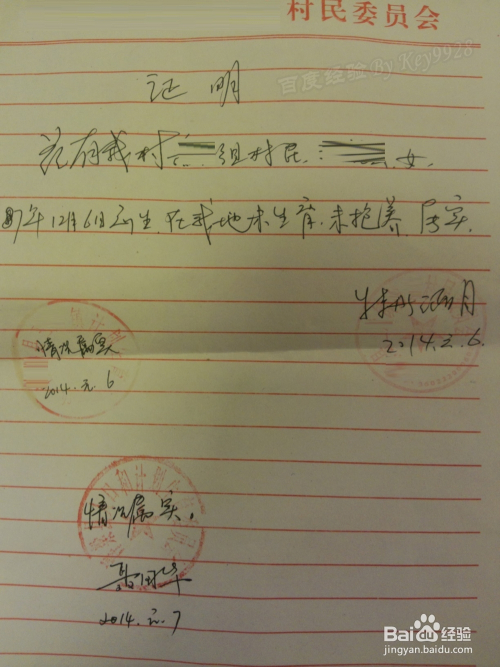 村民委员会
百度经验 By Key9928
证明
兹有我村 组村民 女
87年12月6日出生.在我地未生育.未抱养 属实.
特此证明
2014.2.6.
情况属实
2014.元.6
情况属实.
2014.元.7
Baidu经验
jingyan.baidu.com